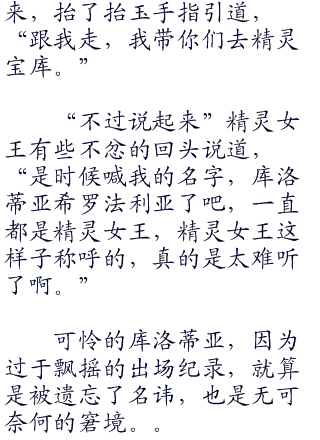 来，抬了抬玉手指引道，
“跟我走，我带你们去精灵
宝库。”
“不过说起来”精灵女
王有些不忿的回头说道，
“是时候喊我的名字，库洛
蒂亚希罗法利亚了吧，一直
都是精灵女王，精灵女王这
样子称呼的，真的是太难听
了啊。”
可怜的库洛蒂亚，因为
过于飘摇的出场纪录，就算
是被遗忘了名讳，也是无可
奈何的窘境。。